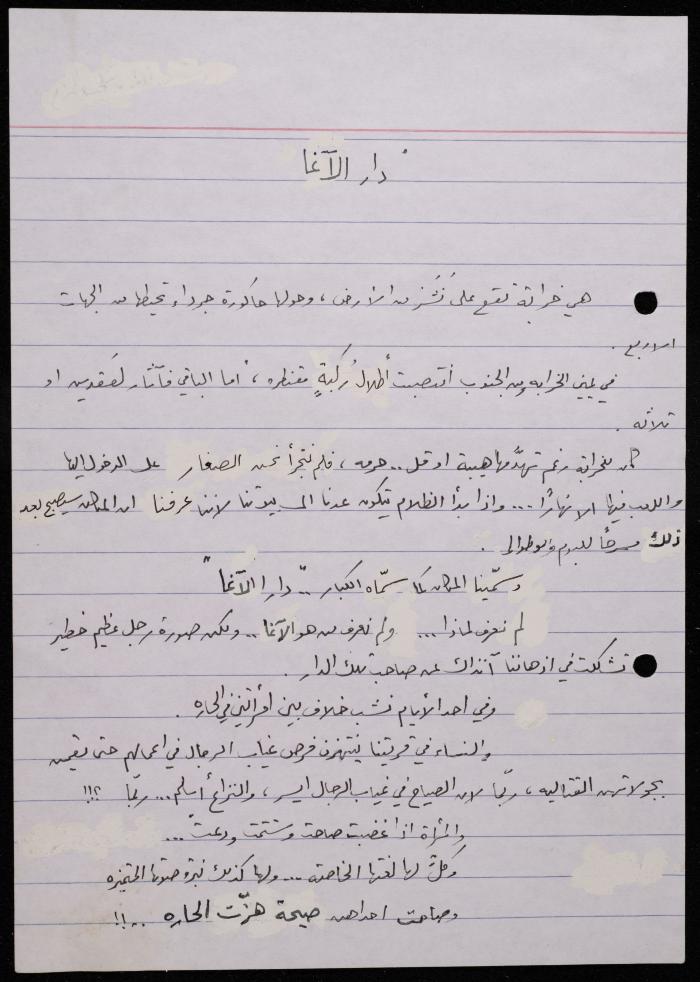 دار الآغا
هي خرابة تقع على نَشَز من الأرض ، وحولها حاكورة جرداء تحيطها من الجهات
الاربع .
في يمين الخرابه ومن الجنوب أنتصبت أطلال رُكبةٍ مقنطره ، أما الباقي فآثار لعَقدين او
ثلاثه .
كان للخرابة رغم تهدُّمها هيبة او قل .. حرمه ، فلم نتجرأ نحن الصغار على الدخول اليها
واللعب فيها الا نهارًا ... واذا بدأ الظلام يتكون عدنا الى بيوتنا لاننا عرفنا ان المكان سيصبح بعد
ذلك مسرحاً للبوم والوطواط .
وسمّينا المكان كما سمّاه الكبار .. " دار الآغا "
لم نعرف لماذا ... ولم نعرف من هو الآغا .. ولكن صورة رجل عظيم خطير
تشكلت في اذهاننا آنذاك عن صاحب تلك الدار .
وفي احد الأيام نشب خلاف بين أمرأتين في الحاره .
والنساء في قريتنا ينتهزن فرص غياب الرجال في اعمالهم حتى يقمن
بجولاتهن القتاليه ، ربّما لان الصياح في غياب الرجال ايسر ، والنزاع أسلم ... ربّما ؟!!
والمرأة اذا غضبت صاحت وشتمت ودعت ...
وكلٌ لها لغتها الخاصة ... ولها كذلك نبرة صوتها المتميزه
وصاحت احداهن صيحة هزّت الحاره .. !!